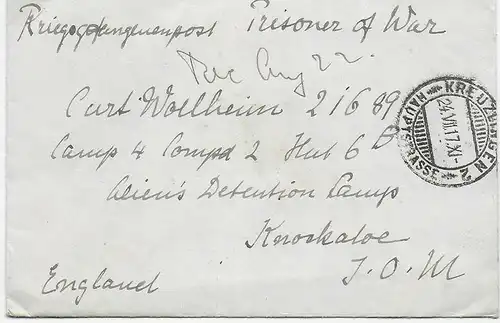 Kriegsgefangenenpost Prisoner of War
Rec Aug 22.
Curt Wollheim 21689
Camp 4 Compd 2 Hut 6 B
Alien's Detention Camp
Knockaloe
I.O.M
England
KREUZLINGEN 2
24.VII.17.XI-
HAUPTSTRASSE